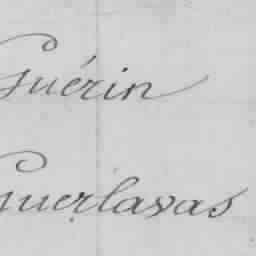 Guérin
Guerlavas